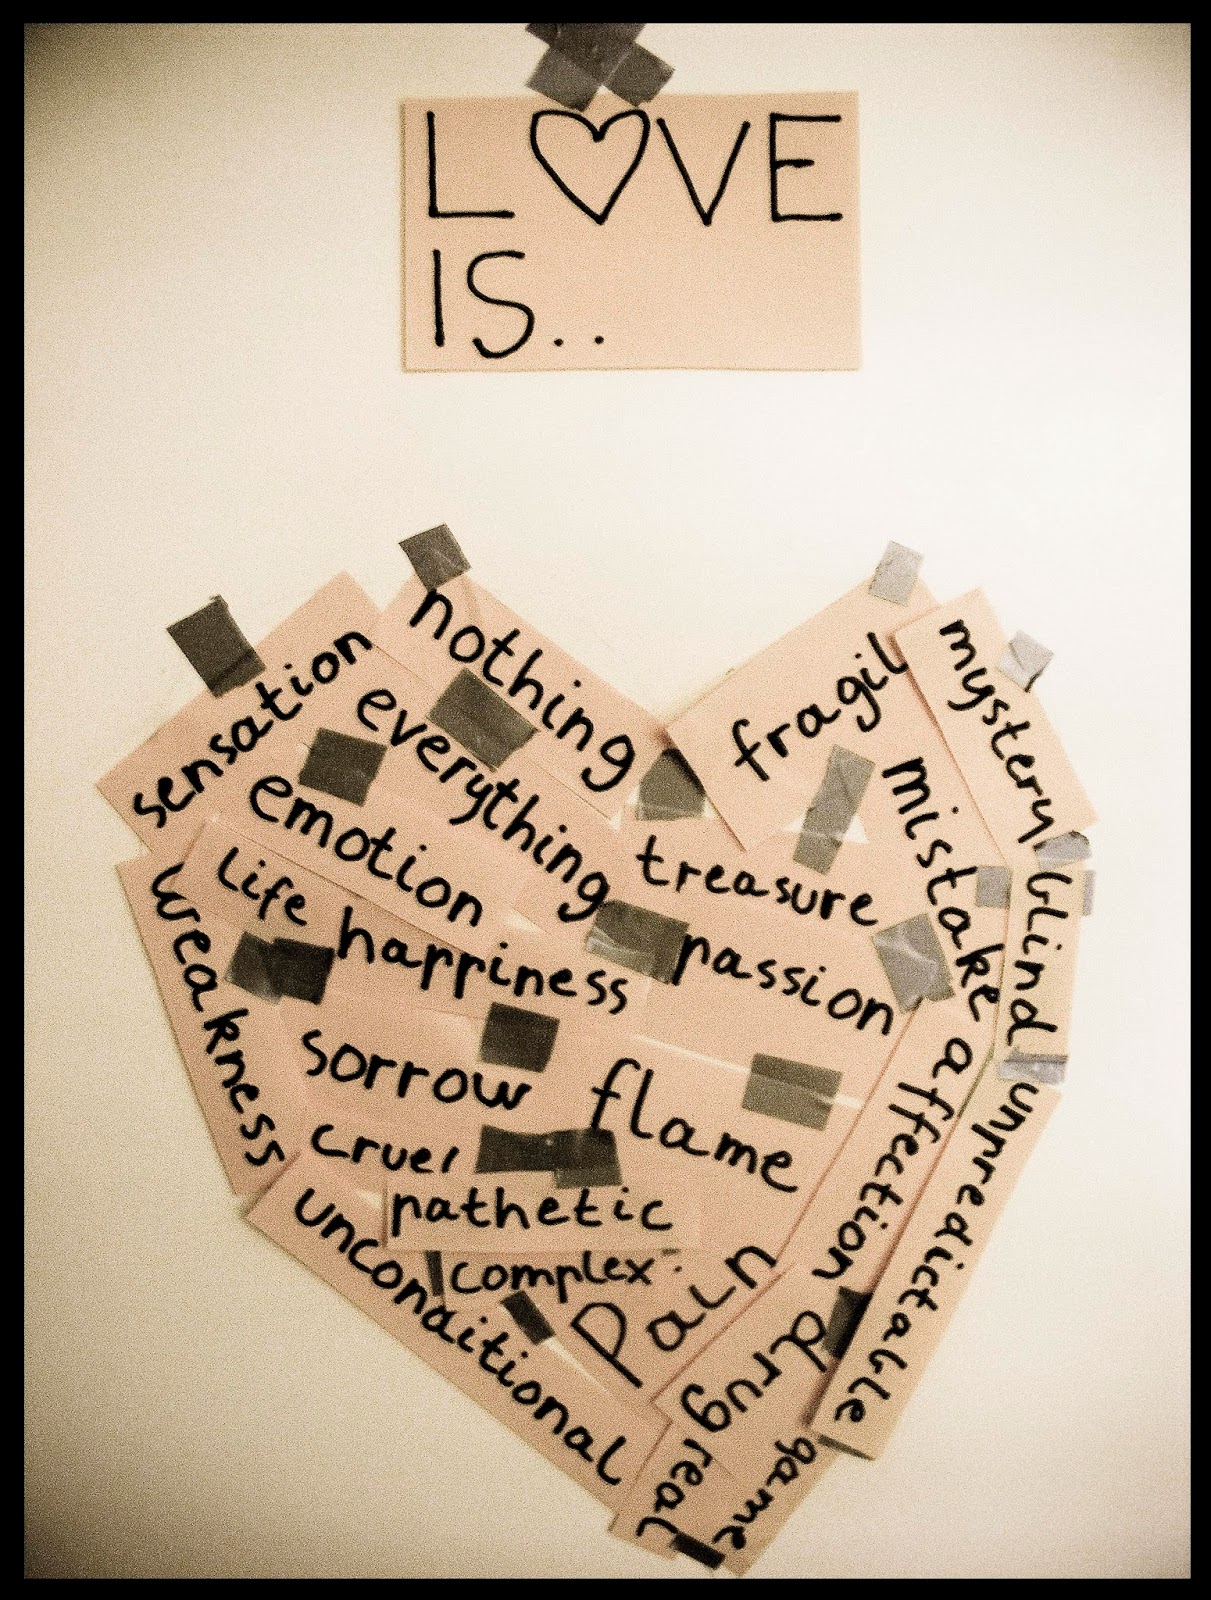 LOVE
IS..
nothing
sensation
everything
emotion
fragil
mystery
mistake
treasure
blind
life
happiness
passion
weakness
sorrow
flame
affection
unpredictable
cruel
pathetic
unconditional
complex
pain
drug
real
game